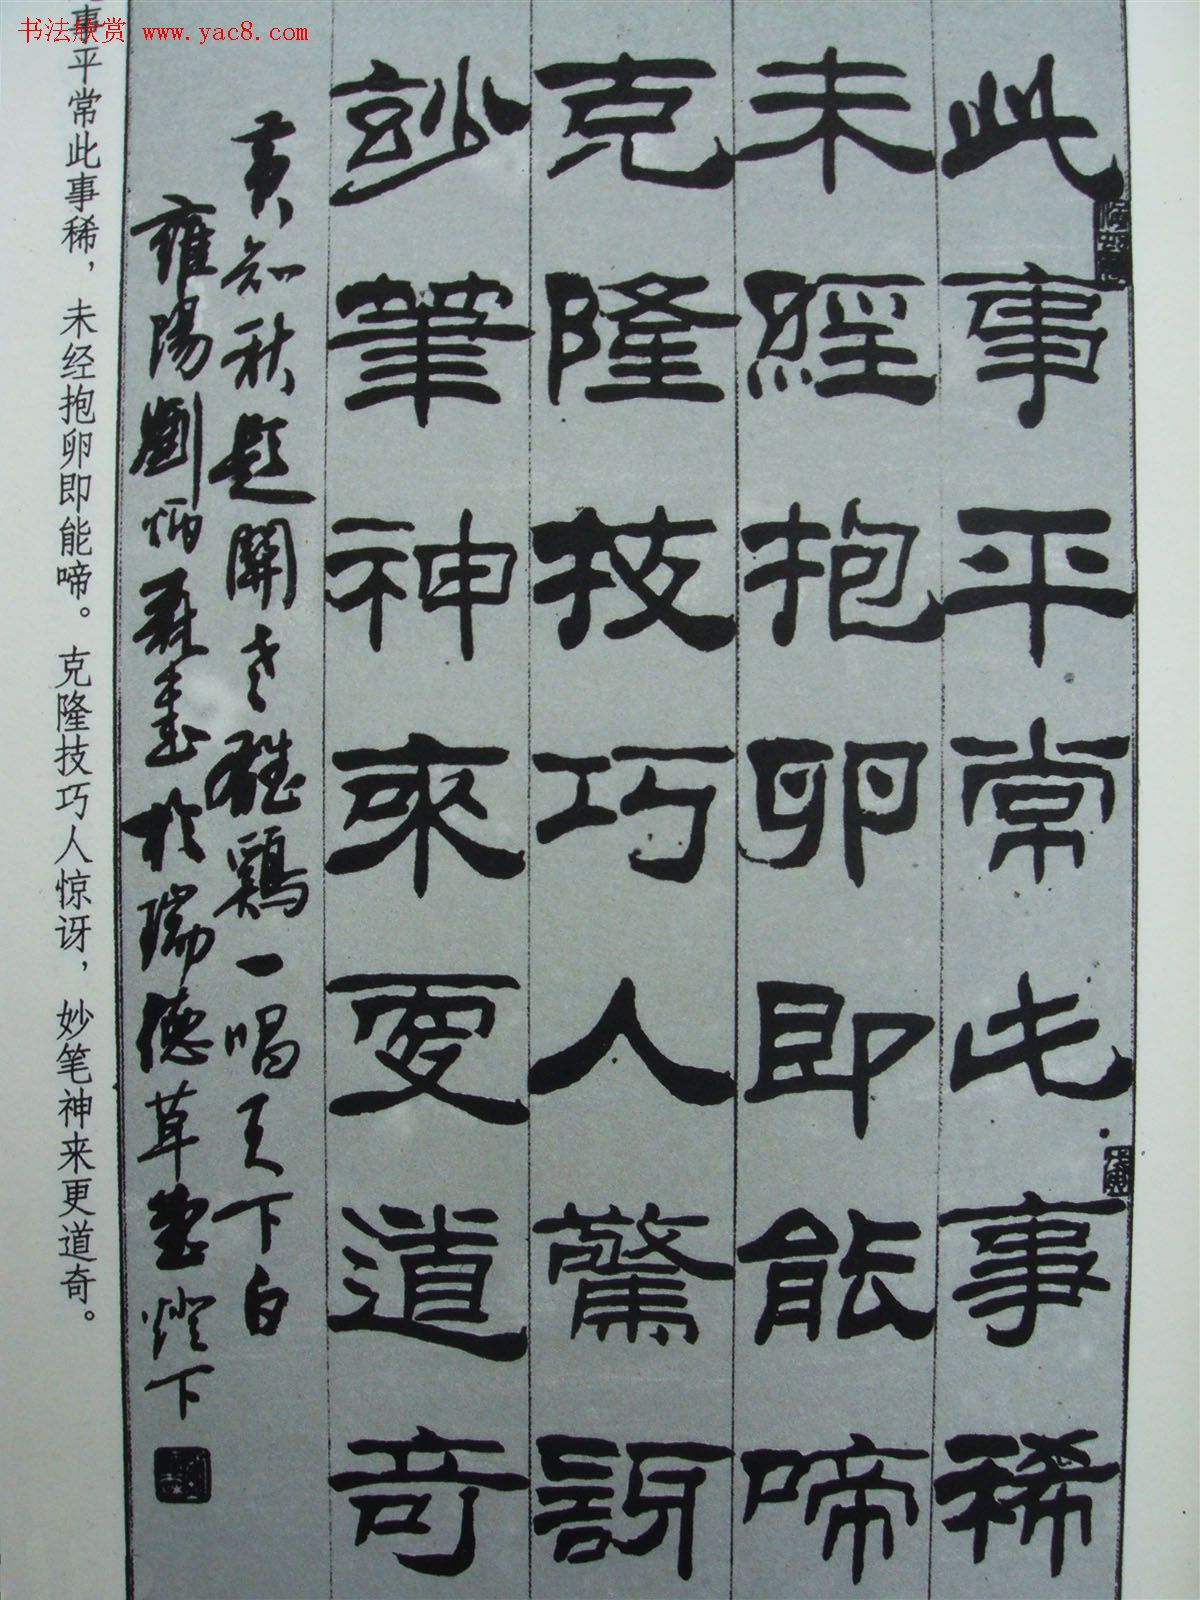 书法欣赏 www.yac8.com
此事平常此事稀
未經抱卵即能啼
克隆技巧人驚訝
妙筆神來更道奇
黄知秋題關老雄鷄一唱天下白
雍陽劉炳森書於瑞德草堂燈下
事平常此事稀，未经抱卵即能啼。克隆技巧人惊讶，妙笔神来更道奇。